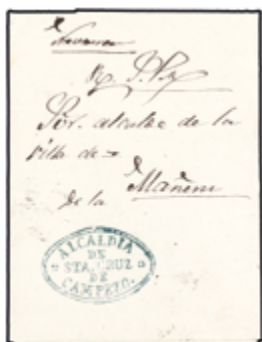 Navarra
Sor. alcalde de la
villa de
Mañeru
de la
ALCALDIA
DE
STA. CRUZ
DE
CAMPEZO.